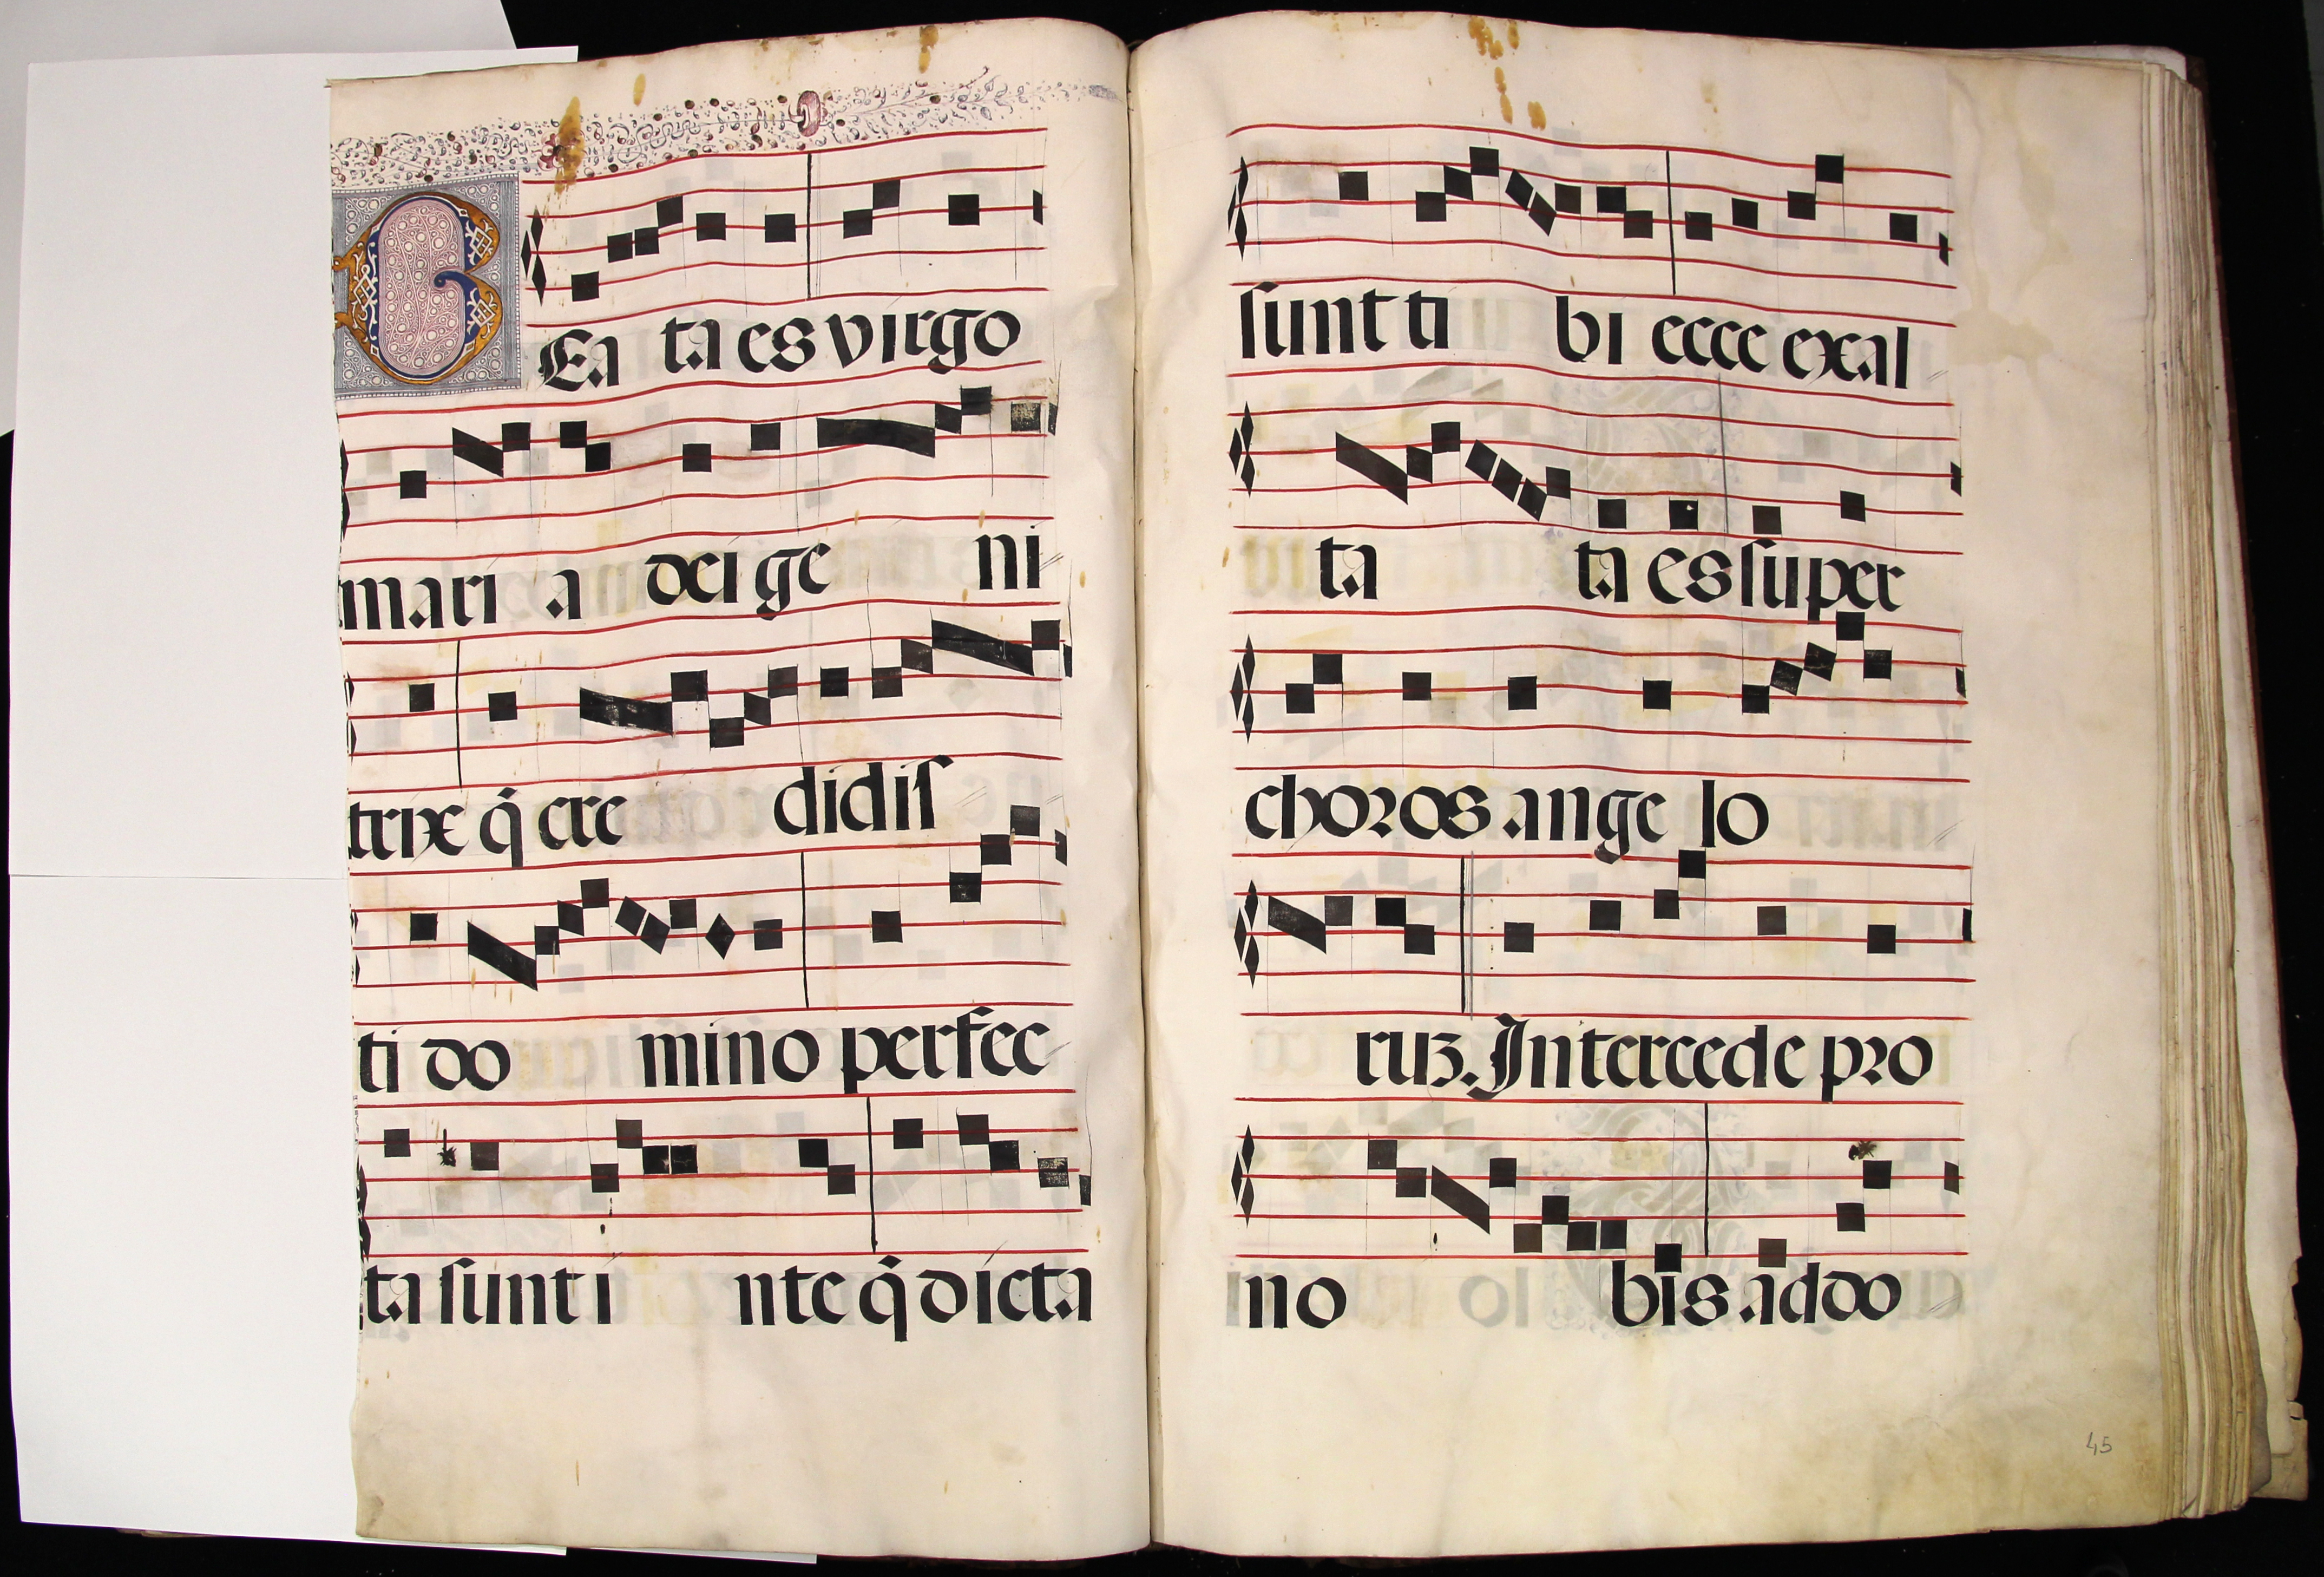 BEa ta es virgo
mari a dei ge ni
trix q̄ cre didis
ti do mino perfec
ta sunt i nte q̄ dicta
sunt ti bi ecce exal
ta ta es super
choros ange lo
ruz. Intercede pro
no bis ad do
45